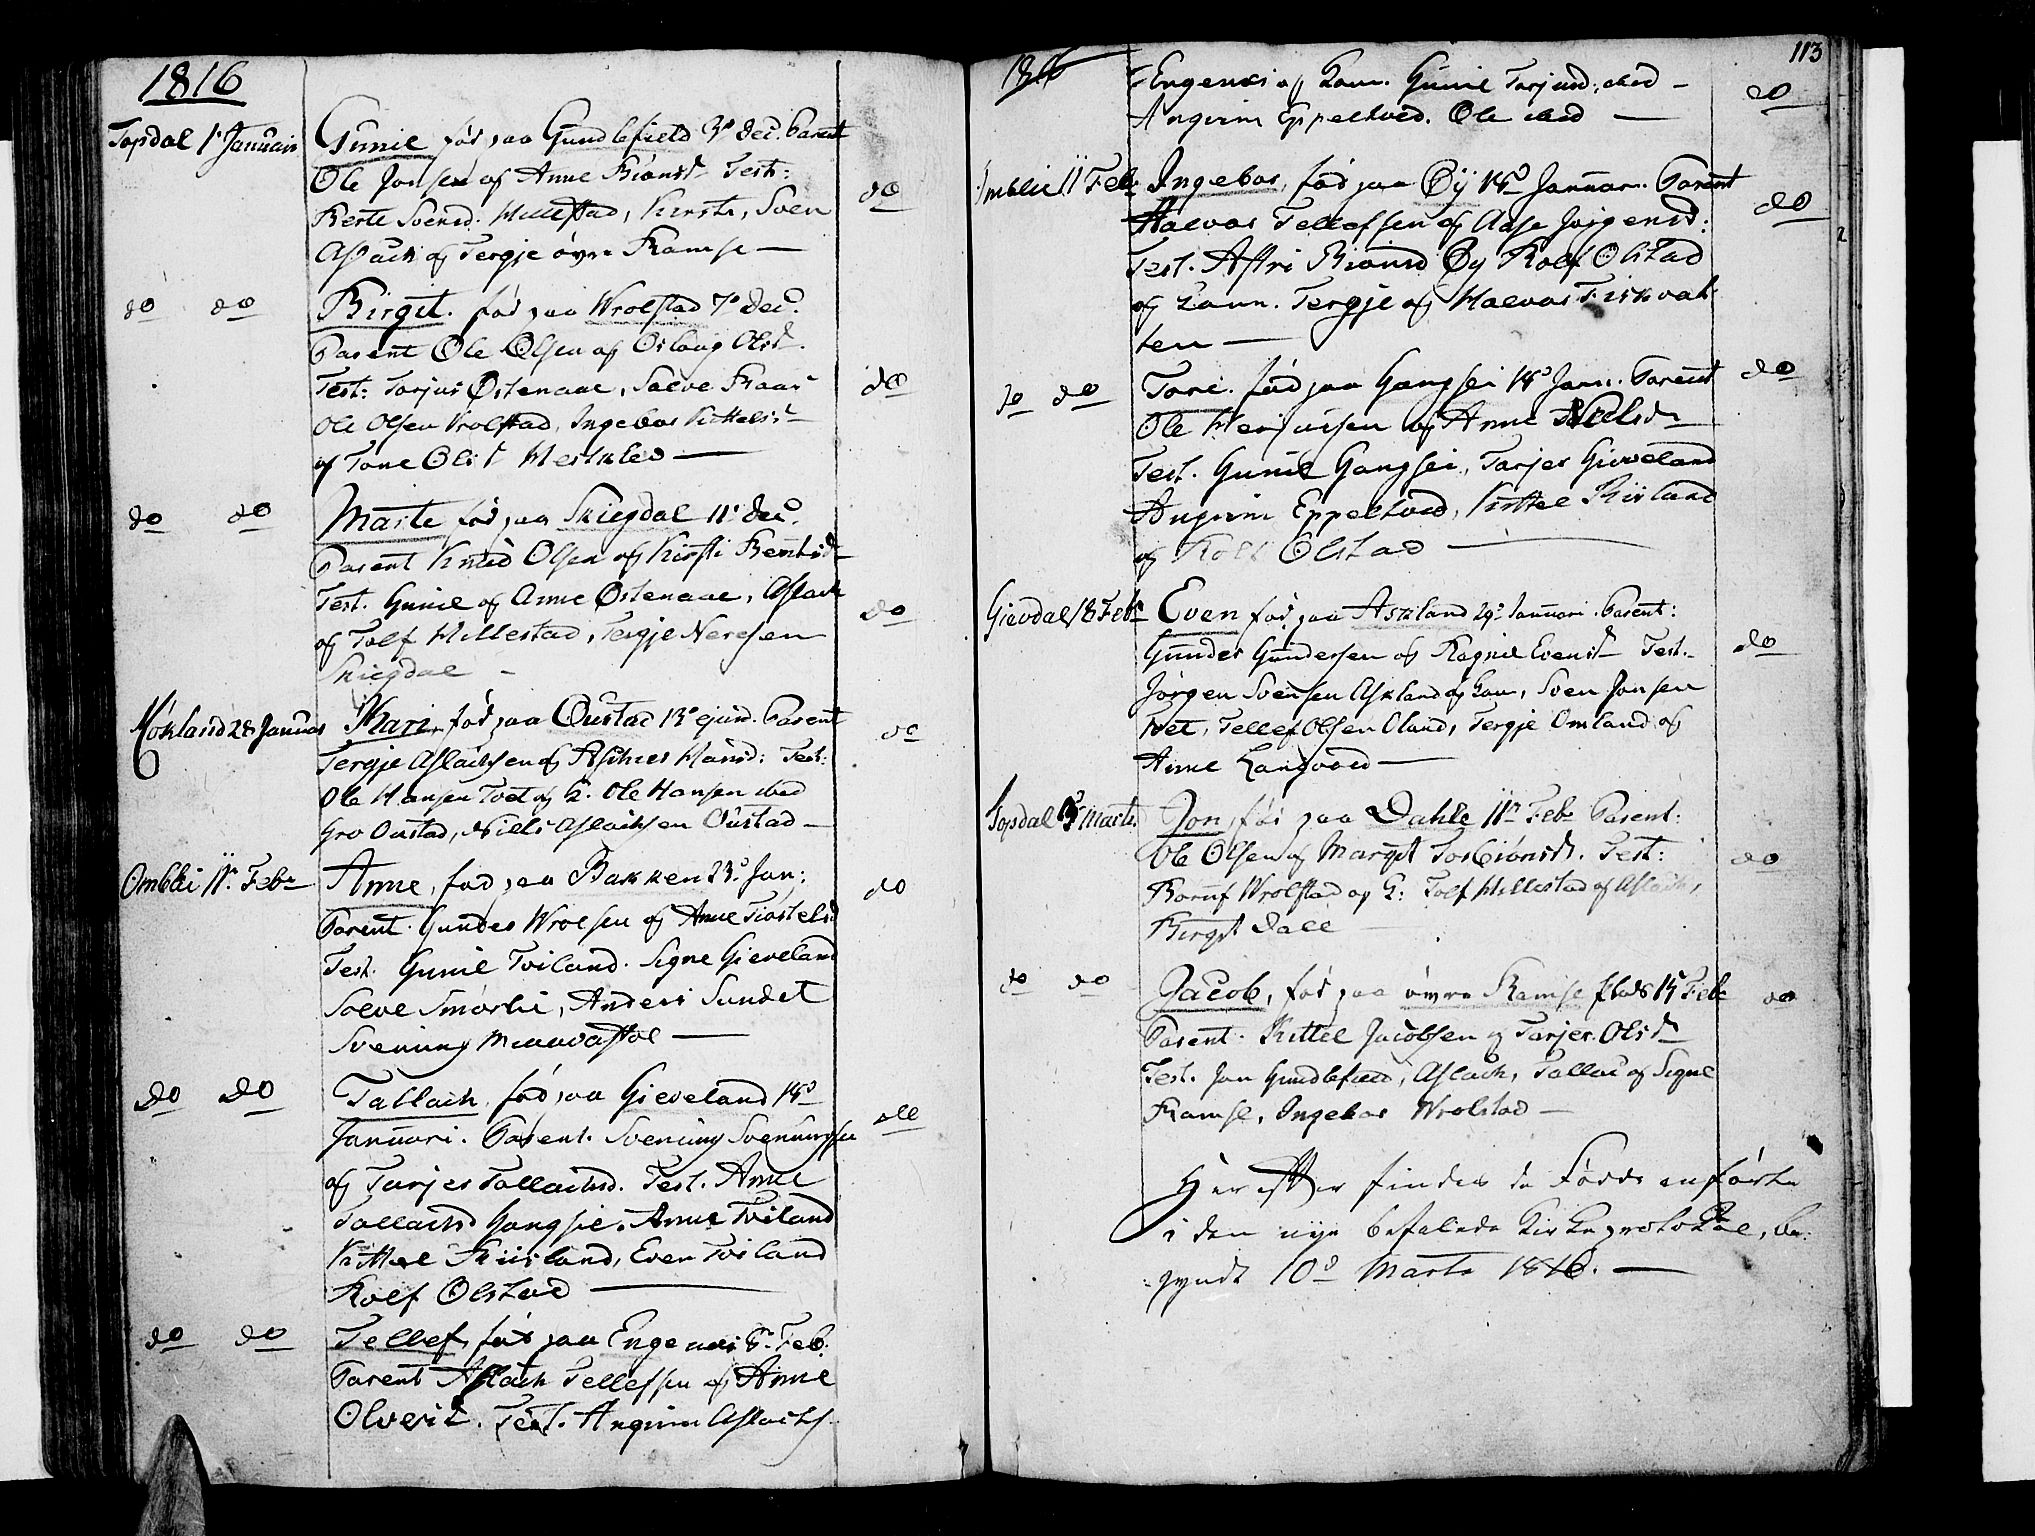 1816
Topsdal 1ˢ Januari Gunil fød paa Gundlefield 3ᵒ Dec. Parent
Ole Jonsen og Anne Biønsd Test:
Berte Svensd. Hillestad, Kirsti, Sven
Aslach og Tergje øvre Ramse —
do do do
Birgit. fød paa Wrolstad 7ᵒ Dec.
Parent Ole Olsen og Oslaug Olsd.
Test: Tarjus Østenaae, Salve
Ole Olsen Vrolstad, Ingebor Kittelsd
og Tone Olsd — do
do do Marte fød paa Skiegdal 11ᵗ Dec.
Parent Knud Olsen og Kirsti Berntsd
Test. Gunil og Anne Østenaae, Aslach
og Tolf Hillestad, Tergje Neresen
Skiegdal — do
28 Januar Kari fød paa Oustad 13ᵒ ejusd. Parent
Tergje Aslachsen og Hansd: Test:
Ole Hansen Tvet og K. Ole Hansen ibid
Gro Oustad, Niels Aslachsen Oustad — do
Omblie 11ᵗ Febr Anne, fød paa Bakken 23ᵈ Jan:
Parent. Gunder Wroesen og Anne Tiostelsd
Test. Gunil Tviland. Signe Gieveland
Solve Smørlie, Anders Sundet
Svenung — do
do do Tallach. fød paa Gieveland 14ᵈ
Januari. Parent. Svenung Svenungsen
og Tarjer Tallachsd. Test. Anne
Tallachsd Gangsei. Anne Tviland
Kittel Kiisland, Even Tviland
Rolf Olstad — do
do do Tellef, fød paa Engenæs 8. Feb.
Parent Aslach Tellefsen og Anne
Olversd. Test. Angrim Aslachs.
1816 113
Engenæs og Gunil Tarjusd. ibid —
Angrim Eppeltved. Ole ibid — do
Omblie 11 Febr Ingebor, fød paa Øÿ 14ᵈ Januar. Parent
Halvor Tellefsen og Aase Jørgensd:
Test. Astri Biønsd Øy Rolf Olstad
og Tergje og Halvor Fiskvat
ten — do
do do Tore. fød paa Gangsei 14ᵈ Jan. Parent
Ole Heriussen og Anne Nielsd
Test. Gunil Gangsei, Tarjer Gieveland
Angrim Eppeltved, Kittel Kiisland
og Rolf Olstad — do
Giovdal 18 Febr Even fød paa Askland 29ᵈ Januari. Parent:
Gunder Gundersen og Ragnil Evensd Test.
Jørgen Svensen Askland og Sven Jonsen
Tvet, Tellef Olsen Oland, Tergje Omland og
Anne Langvoed — do
Topsdal Marti. Jon fød paa Dahle 11ᵗ Feb. Parent:
Ole Olsen og Margit Torbiønsd. Test:
Wrolstad og Tolf Hillestad og Aslach,
Birgit Dale — do
do do Jacob, fød paa øvre Ramse 15 Febr
Parent. Kittel Jacobsen og Tarjer Olsd
Test. Jon Gundlefield, Aslach, Tallac og Signe
Ramse, Ingebor Wrolstad — do
Herefter findes de Fødde anførte
i den nye befalede Kirkeprotokol, be:
gyndt 10ᵈ Marti 1816. —